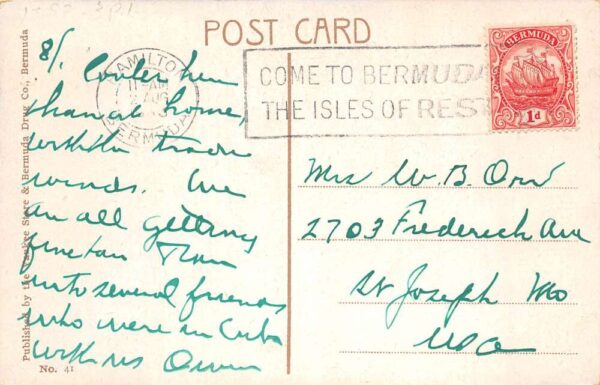 POST CARD
HAMILTON
BERMUDA
COME TO BERMUDA
THE ISLES OF REST
BERMUDA
1d
8/1 Cooler here
than at home,
with the trade
winds. We
are all getting
fine tan Ran
into several friends
who were in Cuba
with us Owen
Mrs W. B. Orr
2703 Frederick Ave
St Joseph Mo
USA
Published by the Yankee Store & Bermuda Drug Co., Bermuda
No. 41